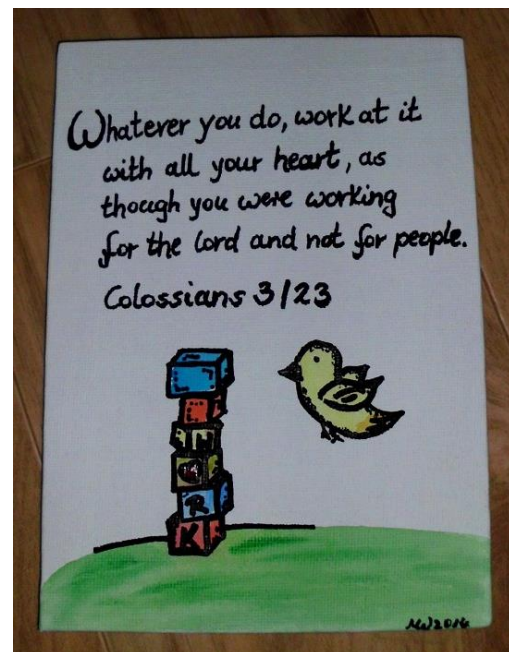 Whatever you do, work at it
with all your heart, as
though you were working
for the Lord and not for people.
Colossians 3/23
R
K